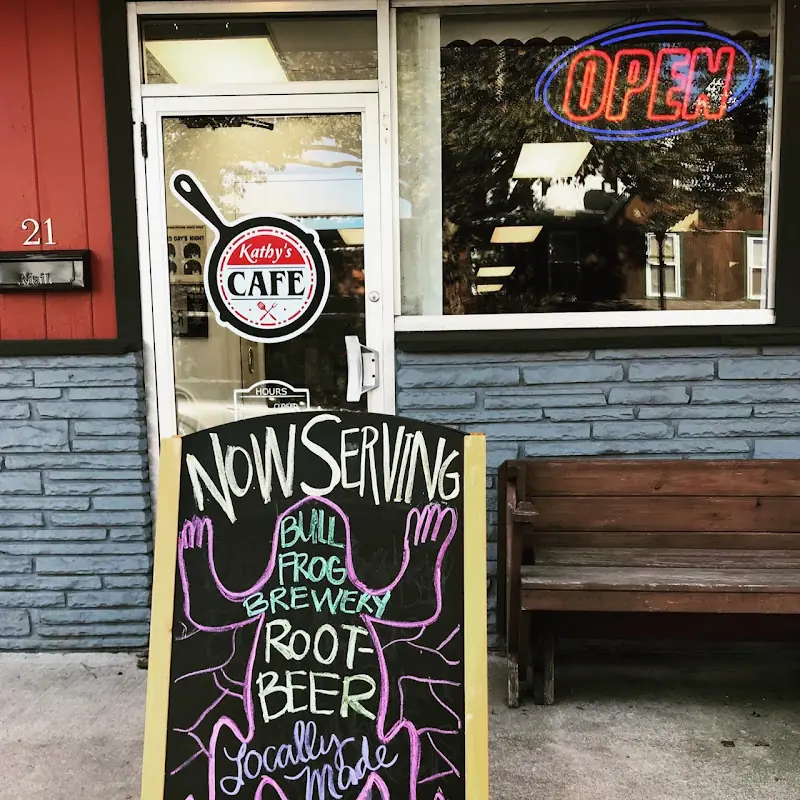 OPEN
21
Mail
Kathy's
CAFE
HOURS
CLOSED
NOW SERVING
BULL
FROG
BREWERY
ROOT-
BEER
Locally
Made